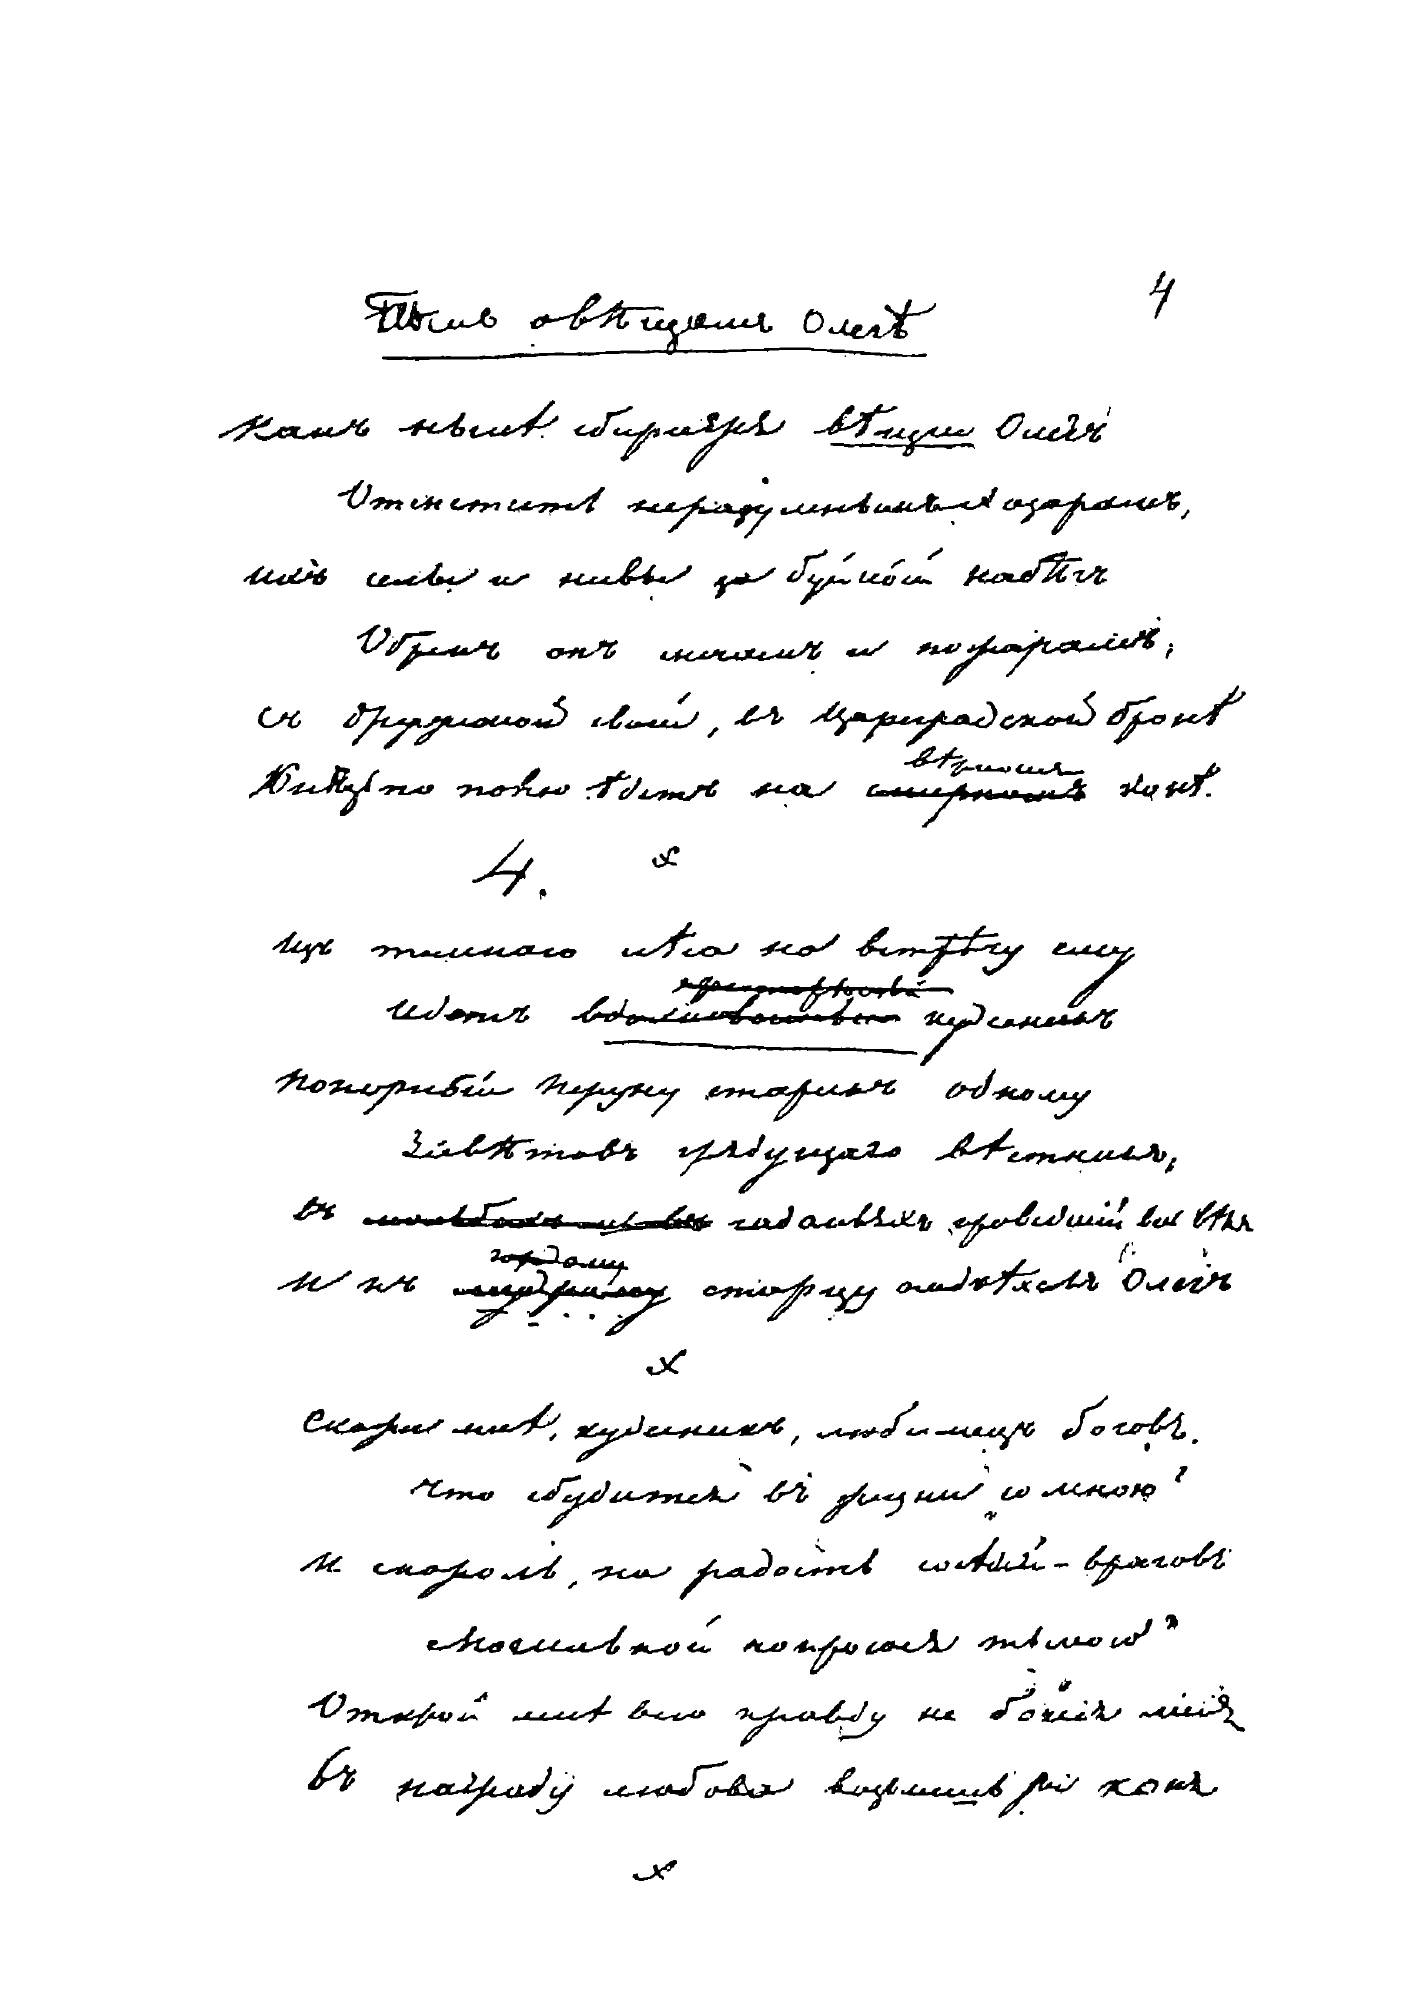 4
Пѣснь о вѣщемъ Олегѣ
Какъ нынѣ сбирается вѣщій Олегъ
Отмстить неразумнымъ Хозарамъ,
Ихъ селы и нивы за буйной набѣгъ
Обрекъ онъ мечамъ и пожарамъ;
Съ дружиной своей, въ Цареградской бронѣ
вѣрномъ
Князь по полю ѣдетъ на смирномъ конѣ.
4.
x
Изъ темнаго лѣса на встрѣчу ему
Идетъ вдохновенный кудесникъ
Покорный Перуну старикъ одному
Завѣтовъ грядущаго вѣстникъ,
Въ гаданьяхъ проведшій весь вѣкъ
гордому
И къ мудрому старцу подъѣхалъ Олегъ
x
Скажи мнѣ, кудесникъ, любимецъ боговъ.
Что сбудется въ жизни со мною?
И скороль, на радость сосѣдей-враговъ
Могильной покроюся землею?
Открой мнѣ всю правду не бойся меня
Въ награду любова возьмешь ты коня
x